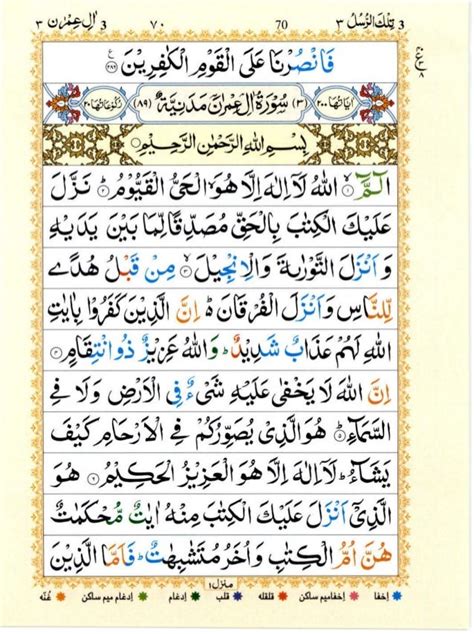 تِلْكَ الرُّسُلُ ٣ 3 70 ٧٠ اٰلِ عِمْرٰن ٣ 3
فَانْصُرْنَا عَلَى الْقَوْمِ الْكٰفِرِيْنَ
اٰيَاتُهَا ٢٠٠ (٣) سُوْرَةُ اٰلِ عِمْرٰنَ مَدَنِيَّةٌ (٨٩) رُكُوْعَاتُهَا ٢٠
بِسْمِ اللّٰهِ الرَّحْمٰنِ الرَّحِيْمِ
الٓمّٓ ۙ﴿۱﴾ اللّٰهُ لَاۤ اِلٰهَ اِلَّا هُوَ الْحَیُّ الْقَیُّوْمُ ؕ﴿۲﴾ نَزَّلَ
عَلَیْكَ الْكِتٰبَ بِالْحَقِّ مُصَدِّقًا لِّمَا بَیْنَ یَدَیْهِ
وَ اَنْزَلَ التَّوْرٰىةَ وَ الْاِنْجِیْلَ ۙ﴿۳﴾ مِنْ قَبْلُ هُدًی
لِّلنَّاسِ وَ اَنْزَلَ الْفُرْقَانَ ؕ۬ اِنَّ الَّذِیْنَ كَفَرُوْا بِاٰیٰتِ
اللّٰهِ لَهُمْ عَذَابٌ شَدِیْدٌ ؕ وَ اللّٰهُ عَزِیْزٌ ذُو انْتِقَامٍ ﴿۴﴾
اِنَّ اللّٰهَ لَا یَخْفٰی عَلَیْهِ شَیْءٌ فِی الْاَرْضِ وَ لَا فِی
السَّمَآءِ ؕ﴿۵﴾ هُوَ الَّذِیْ یُصَوِّرُكُمْ فِی الْاَرْحَامِ كَیْفَ
یَشَآءُ ؕ لَاۤ اِلٰهَ اِلَّا هُوَ الْعَزِیْزُ الْحَكِیْمُ ﴿۶﴾ هُوَ
الَّذِیْۤ اَنْزَلَ عَلَیْكَ الْكِتٰبَ مِنْهُ اٰیٰتٌ مُّحْكَمٰتٌ
هُنَّ اُمُّ الْكِتٰبِ وَ اُخَرُ مُتَشٰبِهٰتٌ ؕ فَاَمَّا الَّذِیْنَ
منزل ١
اخفا اخفا میم ساکن قلقلہ قلب ادغام ادغام میم ساکن غنّہ